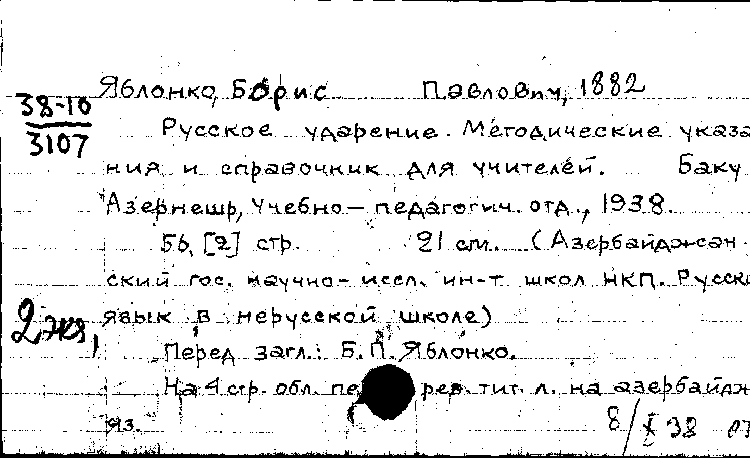 Яблонко, Борис Павлович, 1882
38-10
3107
Русское ударение. Методические указа
ния и справочник для учителей. Баку
Азернешр, Учебно-педагогич. отд., 1938.
56, [2] стр. 21 см. (Азербайджан-
ский гос. научно-иссл. ин-т школ НКП. Русск
язык в нерусской школе)
2 экз,
Перед загл.: Б. П. Яблонко.
На 4 стр. обл. пе рев. тит. л. на азербайдж
яз.
8/X 38